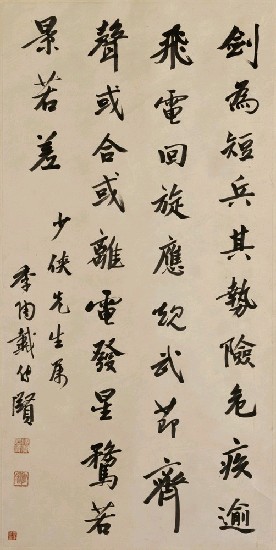 剑為短兵其勢險危疾逾
飛電回旋應規武節齊
聲或合或離電發星驚若
景若差
少俠先生属
季陶戴传賢